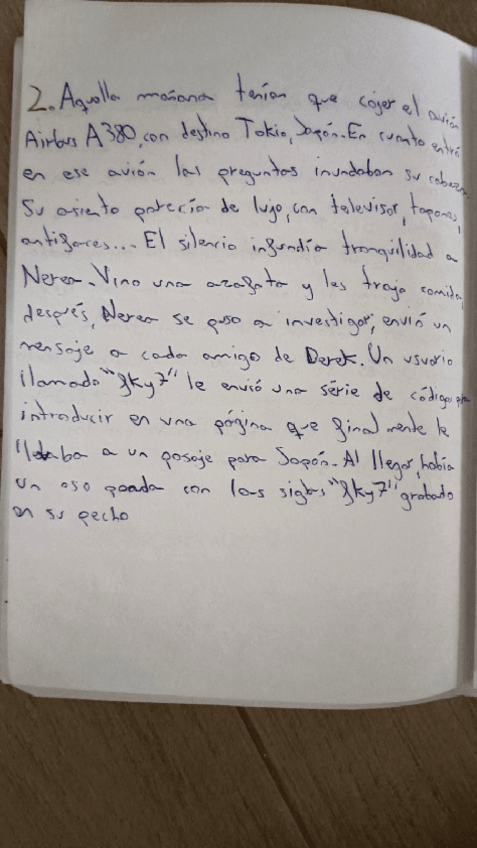 2. Aquella mañana tenían que cojer el avión
Airbus A380, con destino Tokio, Japón. En cuanto entró
en ese avión las preguntas inundaban su cabeza.
Su asiento parecía de lujo, con televisor, tapones,
antifaces... El silencio infundía tranquilidad a
Nerea. Vino una azafata y les trajo comida,
después, Nerea se puso a investigar, envió un
mensaje a cada amigo de Derek. Un usuario
llamado "fky7" le envió una série de códigos para
introducir en una página que finalmente le
llevaba a un pasaje para Japón. Al llegar, había
un oso panda con las siglas "fky7" grabado
en su pecho